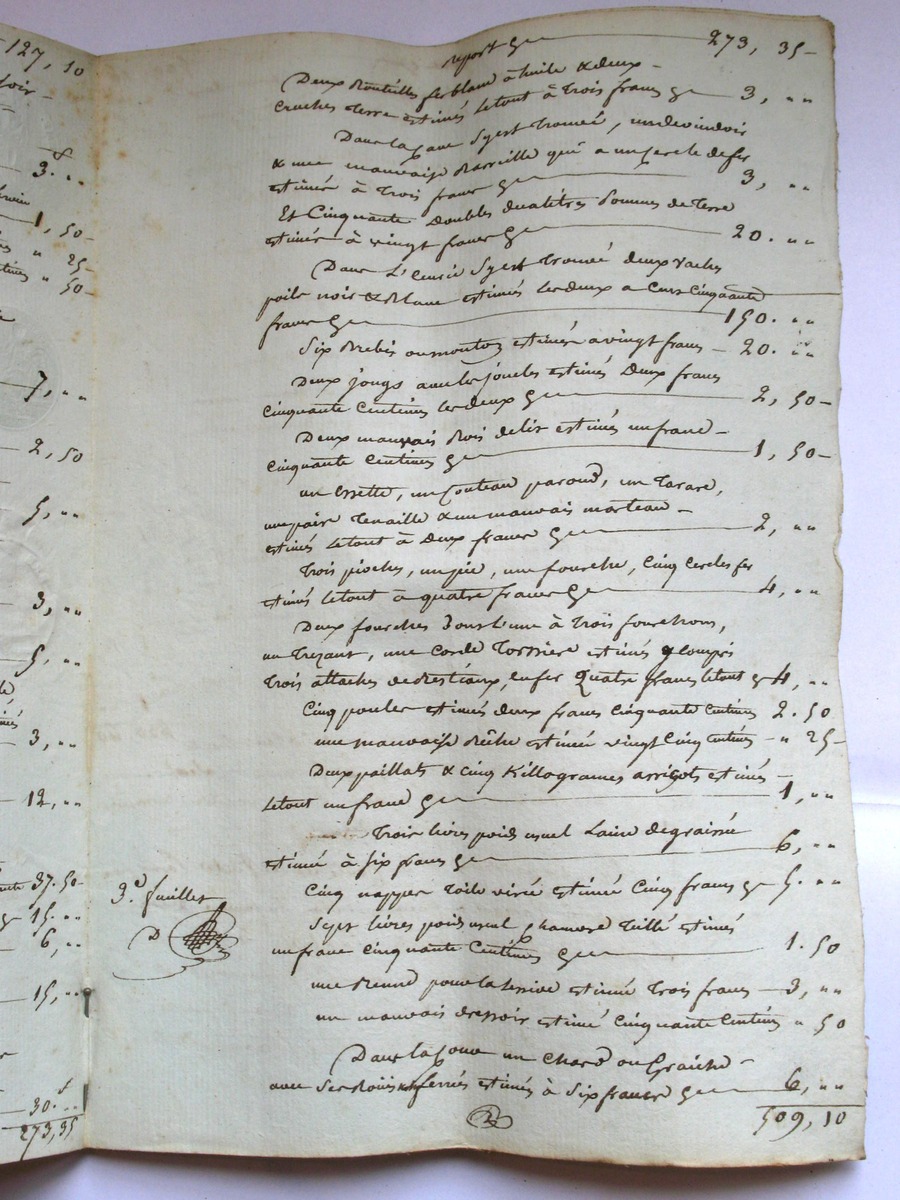 127, 10
3. "
1, 50
" 25
" 50
7, "
2, 50
5, "
3, "
5, "
3, "
12, "
37. 50
15. "
6, "
15, "
30. "
273, 35
report 273, 35
Deux Bouteilles fer blanc à huile & deux
cruches Terre estimés letout à Trois francs 3, "
Dans la Cave S'y est Trouvé, un devindoir
& une mauvaise Barreille qui a un Cercle de fer
estimés à Trois francs 3, "
Et Cinquante Doubles decalitres Pommes de Terre
estimés à vingt francs 20. "
Dans L'Ecurie S'y est Trouvé deux vaches
poils noir & Blanc estimés les deux a Cent Cinquante
francs 150. "
Six Brebis ou mouton estimés a vingt francs 20. "
Deux jougs avec les joucles estimés Deux francs
cinquante Centimes les deux 2, 50
Deux mauvais Bois de lit estimés un franc
cinquante Centimes 1, 50
un Essette, un Couteau paroud, un Tarare,
une paire Tenaille & un mauvais marteau
estimés letout à Deux francs 2, "
Trois pioches, un pic, une fourche, Cinq Cercles fer
estimés letout a quatre francs 4, "
Deux fourches à Trois fourchons,
un Trezant, une Corde estimés y Compris
Trois attaches de Bestiaux, en fer Quatre francs letout 4, "
Cinq poules estimés deux francs Cinquante Centimes 2. 50
une mauvaise Bêche estimée vingt Cinq Centimes " 25
Deux paillats & Cinq Killogrames arrigots estimés
letout un franc 1, "
Trois livres poids usuel Laine degraissée
estimé à Six francs 6, "
Cinq nappes Toile estimé Cinq francs 5. "
3.e fuillet
Sept livres poids usuel Chamore Tillé estimés
un franc Cinquante Centimes 1. 50
une Benne pour la Lessive estimé Trois francs 3, "
un mauvais dressoir estimé Cinquante Centimes " 50
Dans la Cour un Chard ou
avec Ses Rouis ferrés estimés à Six francs 6, "
509, 10